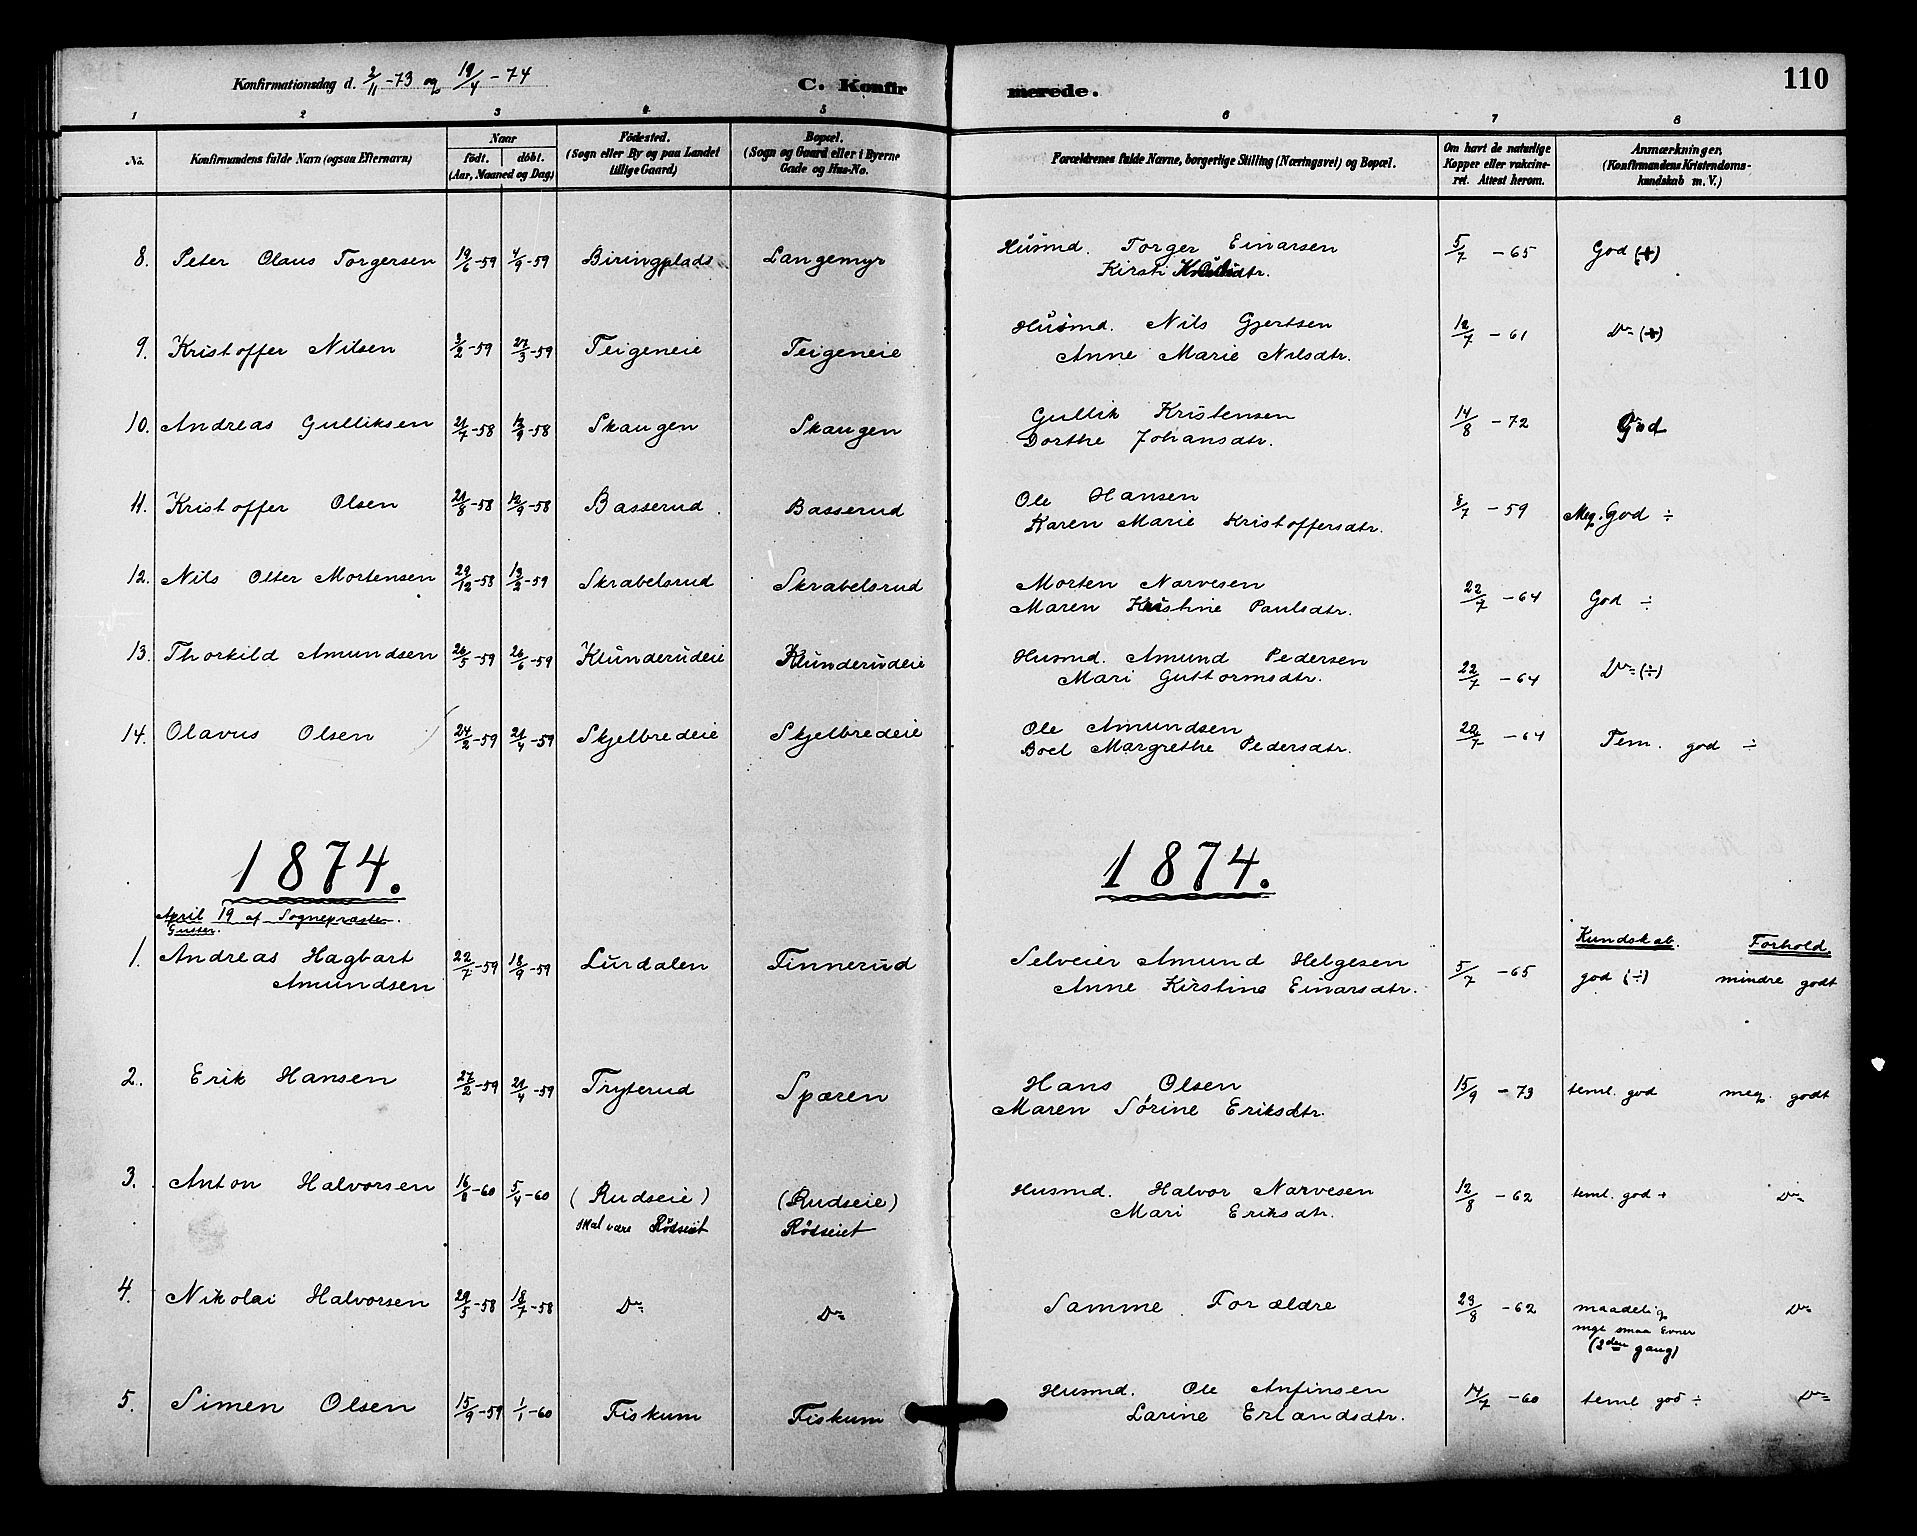 Konfirmationsdag d. 2/11-73 og 19/4-74 C. Konfirmerede. 110
1 2 3 4 5 6 7 8
No. Konfirmandens fulde Navn (ogsaa Efternavn) Naar født. døbt. (Aar, Maaned og Dag) Fødested. (Sogn eller By og paa Landet tillige Gaard) Bopæl. (Sogn og Gaard eller i Byerne Gade og Hus-No. Forældrenes fulde Navne, borgerlige Stilling (Næringsvei) og Bopæl. Om havt de naturlige Kopper eller vakcineret. Attest herom. Anmærkninger, (Konfirmandens Kristendomskundskab m. V.)
8. Peter Olaus Torgersen 19/6-59 4/9-59 Biringplads Langemyr Husmd. Torger Einarsen 5/7-65 God (+)
Kirsti
9. Kristoffer Nilsen 3/2-59 27/3-59 Teigeneie Teigeneie Husmd. Nils Gjertsen 12/7-61 Do= (+)
Anne Marie Nilsdtr.
10. Andreas Gulliksen 21/7-58 12/9-58 Skaugen Skaugen Gullik Kristensen 14/8-72 God
Dorthe Johansdtr.
11. Kristoffer Olsen 21/8-58 12/9-58 Basserud Basserud Ole Hansen 8/7-59 Meg. God ÷
Karen Marie Kristoffersdtr.
12. Nils Otter Mortensen 29/12-58 13/2-59 Skrabelsrud Skrabelsrud Morten Narvesen 22/7-64 God ÷
Maren Kristine Paulsdtr.
13. Thorkild Amundsen 26/5-59 26/6-59 Klunderudeie Klunderudeie Husmd. Amund Pedersen 22/7-64 Do= (÷)
Mari Guttormsdtr.
14. Olavus Olsen 24/2-59 21/4-59 Skjelbredeie Skjelbredeie Ole Amundsen 20/7-64 Tem. god ÷
Boel Margrethe Pedersdtr.
1874. 1874.
April 19 af Sognepræsten
Kundskab. Forhold.
1. Andreas Hagbart 22/7-59 18/9-59 Lurdalen Finnerud Selveier Amund Helgesen 5/7-65 god (÷) mindre godt
Amundsen Anne Kirstine Einarsdtr.
2. Erik Hansen 27/2-59 21/4-59 Tryterud Spæren Hans Olsen 15/9-73 teml. god meg. godt
Maren Sørine Eriksdtr.
3. Anton Halvorsen 16/8-60 5/4-60 (Rudseie) (Rudseie) Husmd. Halvor Narvesen 12/8-62 teml. god + Do=
skal være Rødseiet Rødseiet Mari Eriksdtr.
4. Nikolai Halvorsen 29/5-58 18/7-58 Do= Do= Samme Forældre 23/8-62 maadelig Do=
mgt smaa Evner
(2den gang)
5. Simen Olsen 15/9-59 1/1-60 Fiskum Fiskum Husmd. Ole Anfinsen 14/7-60 teml god ÷ Do=
Larine Erlandsdtr.